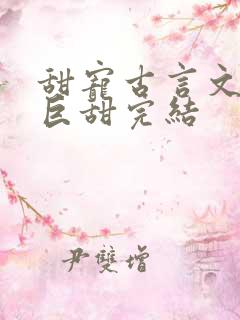 甜寵古言文
巨甜完結
尹雙增